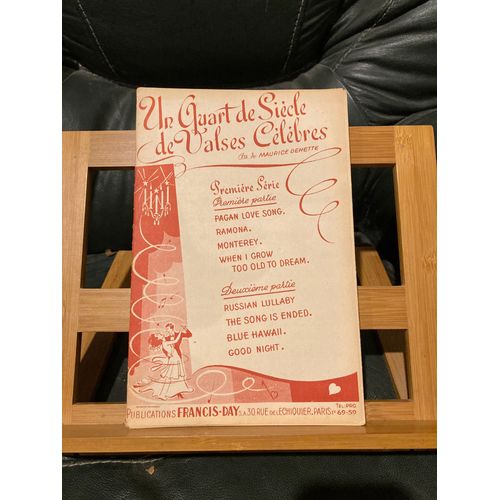 Un Quart de Siècle
de Valses Célèbres
MAURICE DEHETTE
Première Série
Première partie
PAGAN LOVE SONG.
RAMONA.
MONTEREY.
WHEN I GROW
TOO OLD TO DREAM.
Deuxième partie
RUSSIAN LULLABY
THE SONG IS ENDED.
BLUE HAWAII.
GOOD NIGHT.
PUBLICATIONS FRANCIS-DAY S.A. 30 RUE DE L'ECHIQUIER. PARIS
TEL: PRO
69-50